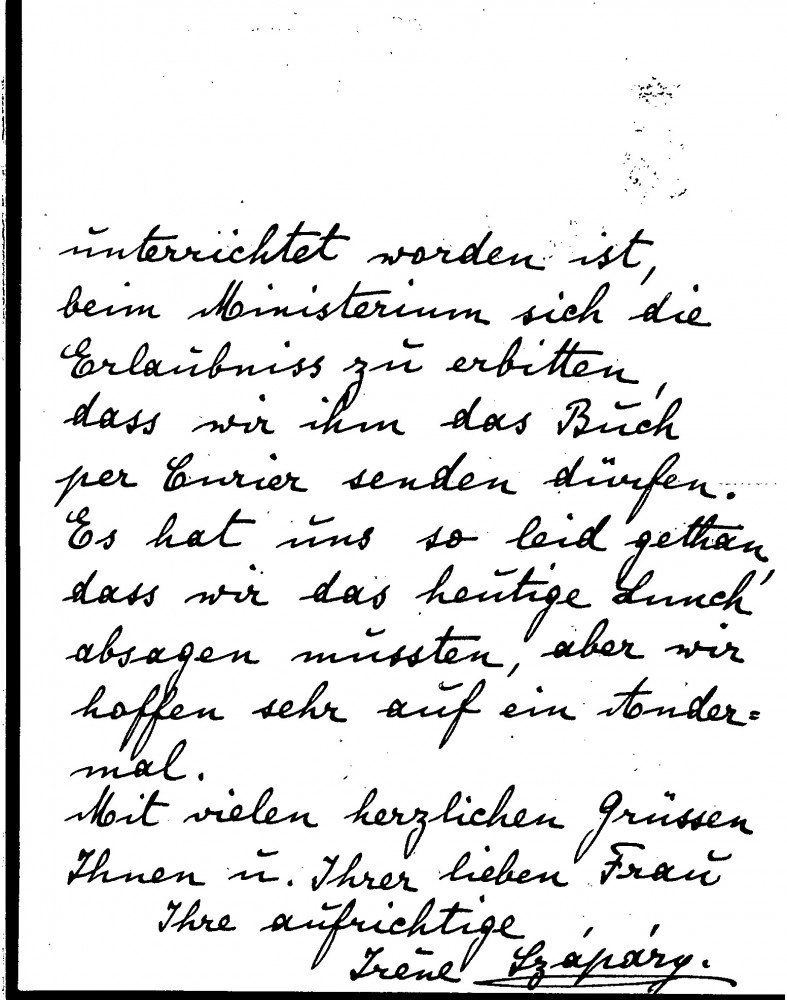 unterrichtet worden ist,
beim Ministerium sich die
Erlaubniss zu erbitten,
dass wir ihm das Buch
per Curier senden dürfen.
Es hat uns so leid gethan,
dass wir das heutige Lunch
absagen mussten, aber wir
hoffen sehr auf ein Ander=
mal.
Mit vielen herzlichen Grüssen
Ihnen u. Ihrer lieben Frau
Ihre aufrichtige
Irène Szápáry.